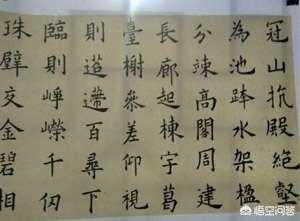 冠山抗殿絶壑
為池跨水架楹
分竦高閣周建
長廊起棟宇葛
臺榭參差仰視
則迢遰百尋下
臨則崢嶸千仞
珠璧交金碧相
悟空问答